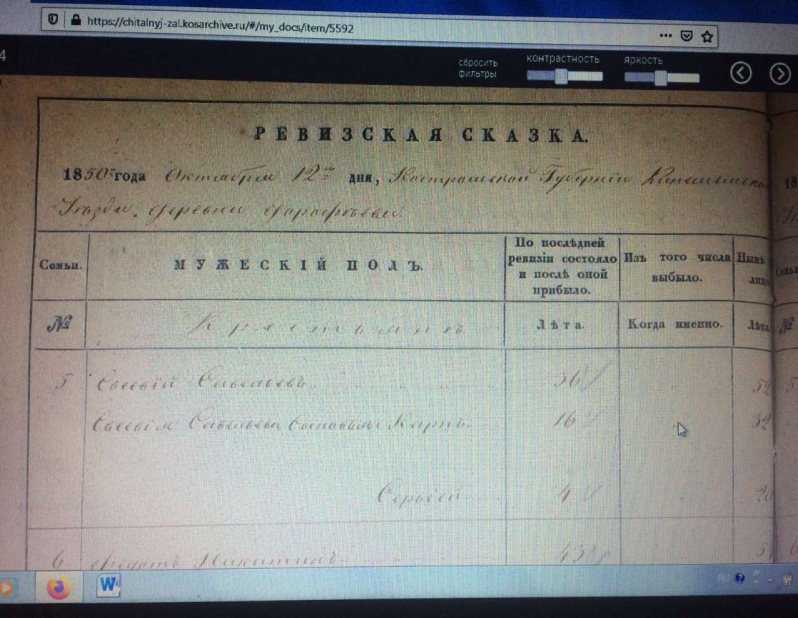 https://chitalnyj-zal.kosarchive.ru/#/my_docs/item/5592
4
сбросить фильтры
контрастность
яркость
РЕВИЗСКАЯ СКАЗКА.
1850 года Октября 12 дня, Костромской Губерніи Кинешемска
Уѣзда, деревни
Семьи.
МУЖЕСКІЙ ПОЛЪ.
По послѣдней ревизіи состояло и послѣ оной прибыло.
Изъ того числа выбыло.
Нынѣ
№
Крестьянинъ
Лѣта.
Когда именно.
Лѣта
№
5 Савельевъ 36 52 5
Савельева Сыновья Карпъ 16 32
Сергѣй 4 20
6 Федотъ Никитинъ 43 6
W
RU